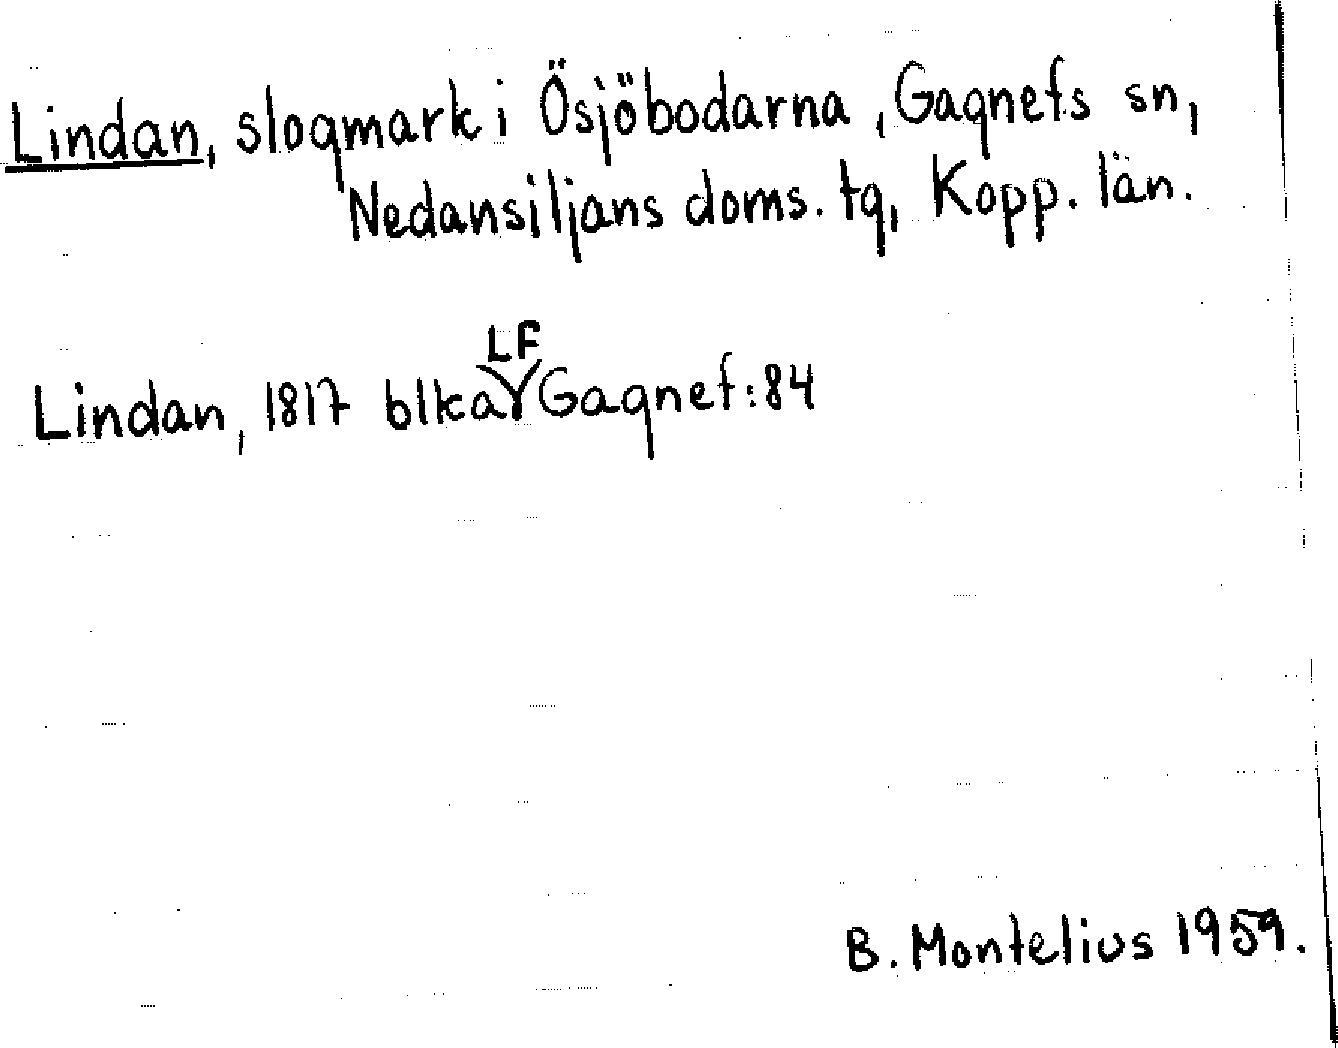 Lindan, slogmark i Ösjöbodarna, Gagnefs sn,
Nedansiljans doms. tg, Kopp. län.
Lindan, 1817 blka LF Gagnef:84
B. Montelius 1959.